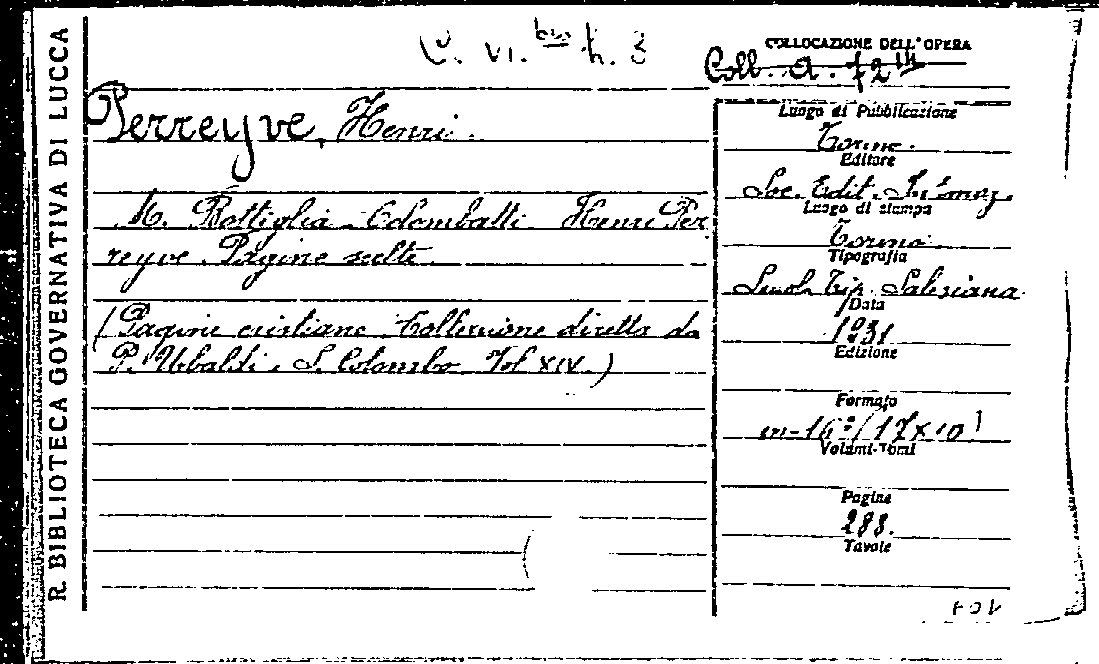 R. BIBLIOTECA GOVERNATIVA DI LUCCA
C. VI. bis h. 3
COLLOCAZIONE DELL'OPERA
Coll. a. 72 III
Perreyve, Henri.
M. Bottiglia - Colombatti Henri Per
reyve. Pagine scelte.
(Pagine cristiane. Collezione diretta da
P. Ubaldi, S. Colombo. Vol XIX.)
Luogo di Pubblicazione
Torino.
Editore
Soc. Edit. Internaz.
Luogo di stampa
Torino.
Tipografia
Scuola Tip. Salesiana
Data
1931
Edizione
Formato
in-16º (17×10)
Volumi-Tomi
Pagine
288.
Tavole